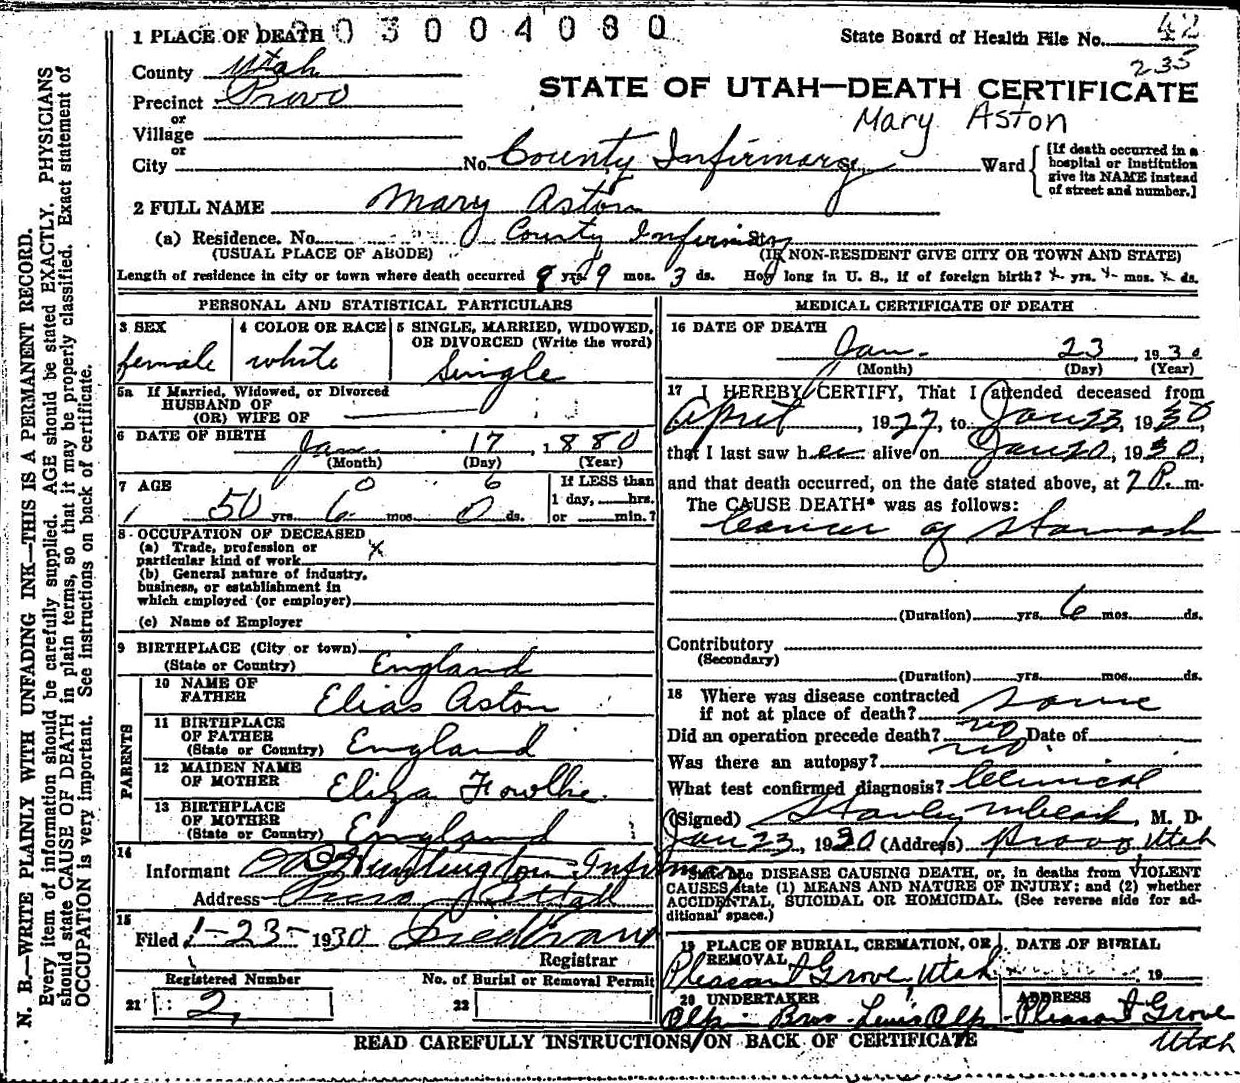 1 PLACE OF DEATH 03004080
State Board of Health File No. 42
235
County Utah
STATE OF UTAH—DEATH CERTIFICATE
Precinct Provo
Mary Aston
or
Village
or
City No. County Infirmary St. Ward
[If death occurred in a
hospital or institution
give its NAME instead
of street and number.]
2 FULL NAME Mary Aston
(a) Residence. No. County Infirmary St.
(USUAL PLACE OF ABODE) (IF NON-RESIDENT GIVE CITY OR TOWN AND STATE)
Length of residence in city or town where death occurred 9 yrs. 9 mos. 3 ds. How long in U. S., if of foreign birth? x yrs. x mos. x ds.
PERSONAL AND STATISTICAL PARTICULARS
3 SEX
female
4 COLOR OR RACE
white
5 SINGLE, MARRIED, WIDOWED,
OR DIVORCED (Write the word)
Single
5a If Married, Widowed, or Divorced
HUSBAND OF
(OR) WIFE OF
6 DATE OF BIRTH Jan. 17, 1880
(Month) (Day) (Year)
7 AGE 0 6
50 yrs. 6 mos. 0 ds.
If LESS than
1 day, hrs.
or min.?
8 OCCUPATION OF DECEASED
(a) Trade, profession or
particular kind of work x
(b) General nature of industry,
business, or establishment in
which employed (or employer)
(c) Name of Employer
9 BIRTHPLACE (City or town)
(State or Country) England
PARENTS
10 NAME OF
FATHER Elias Aston
11 BIRTHPLACE
OF FATHER
(State or Country) England
12 MAIDEN NAME
OF MOTHER Eliza
13 BIRTHPLACE
OF MOTHER
(State or Country) England
14
Informant Huntington
Address Provo Utah
15
Filed 1-23-1930
Registrar
Registered Number
21 2
No. of Burial or Removal Permit
22
MEDICAL CERTIFICATE OF DEATH
16 DATE OF DEATH
Jan. 23, 1930
(Month) (Day) (Year)
17 I HEREBY CERTIFY, That I attended deceased from
April, 1927, to Jan 23, 1930,
that I last saw her alive on Jan 20, 1930,
and that death occurred, on the date stated above, at 2 P. m.
The CAUSE DEATH* was as follows:
Cancer of Stomach
(Duration) yrs. 6 mos. ds.
Contributory
(Secondary)
(Duration) yrs. mos. ds.
18 Where was disease contracted
if not at place of death? same
Did an operation precede death? no Date of
Was there an autopsy? no
What test confirmed diagnosis? Clinical
(Signed) Stanley, M. D.
Jan 23, 1930 (Address) Provo, Utah
*State the DISEASE CAUSING DEATH, or, in deaths from VIOLENT
CAUSES state (1) MEANS AND NATURE OF INJURY; and (2) whether
ACCIDENTAL, SUICIDAL OR HOMICIDAL. (See reverse side for ad-
ditional space.)
19 PLACE OF BURIAL, CREMATION, OR
REMOVAL
Pleasant Grove, Utah
DATE OF BURIAL
19
20 UNDERTAKER
Olpin Bros - Lewis Olpin
ADDRESS
Pleasant Grove
Utah
READ CAREFULLY INSTRUCTIONS ON BACK OF CERTIFICATE
N. B.—WRITE PLAINLY WITH UNFADING INK—THIS IS A PERMANENT RECORD.
Every item of information should be carefully supplied. AGE should be stated EXACTLY. PHYSICIANS
should state CAUSE OF DEATH in plain terms, so that it may be properly classified. Exact statement of
OCCUPATION is very important. See instructions on back of certificate.